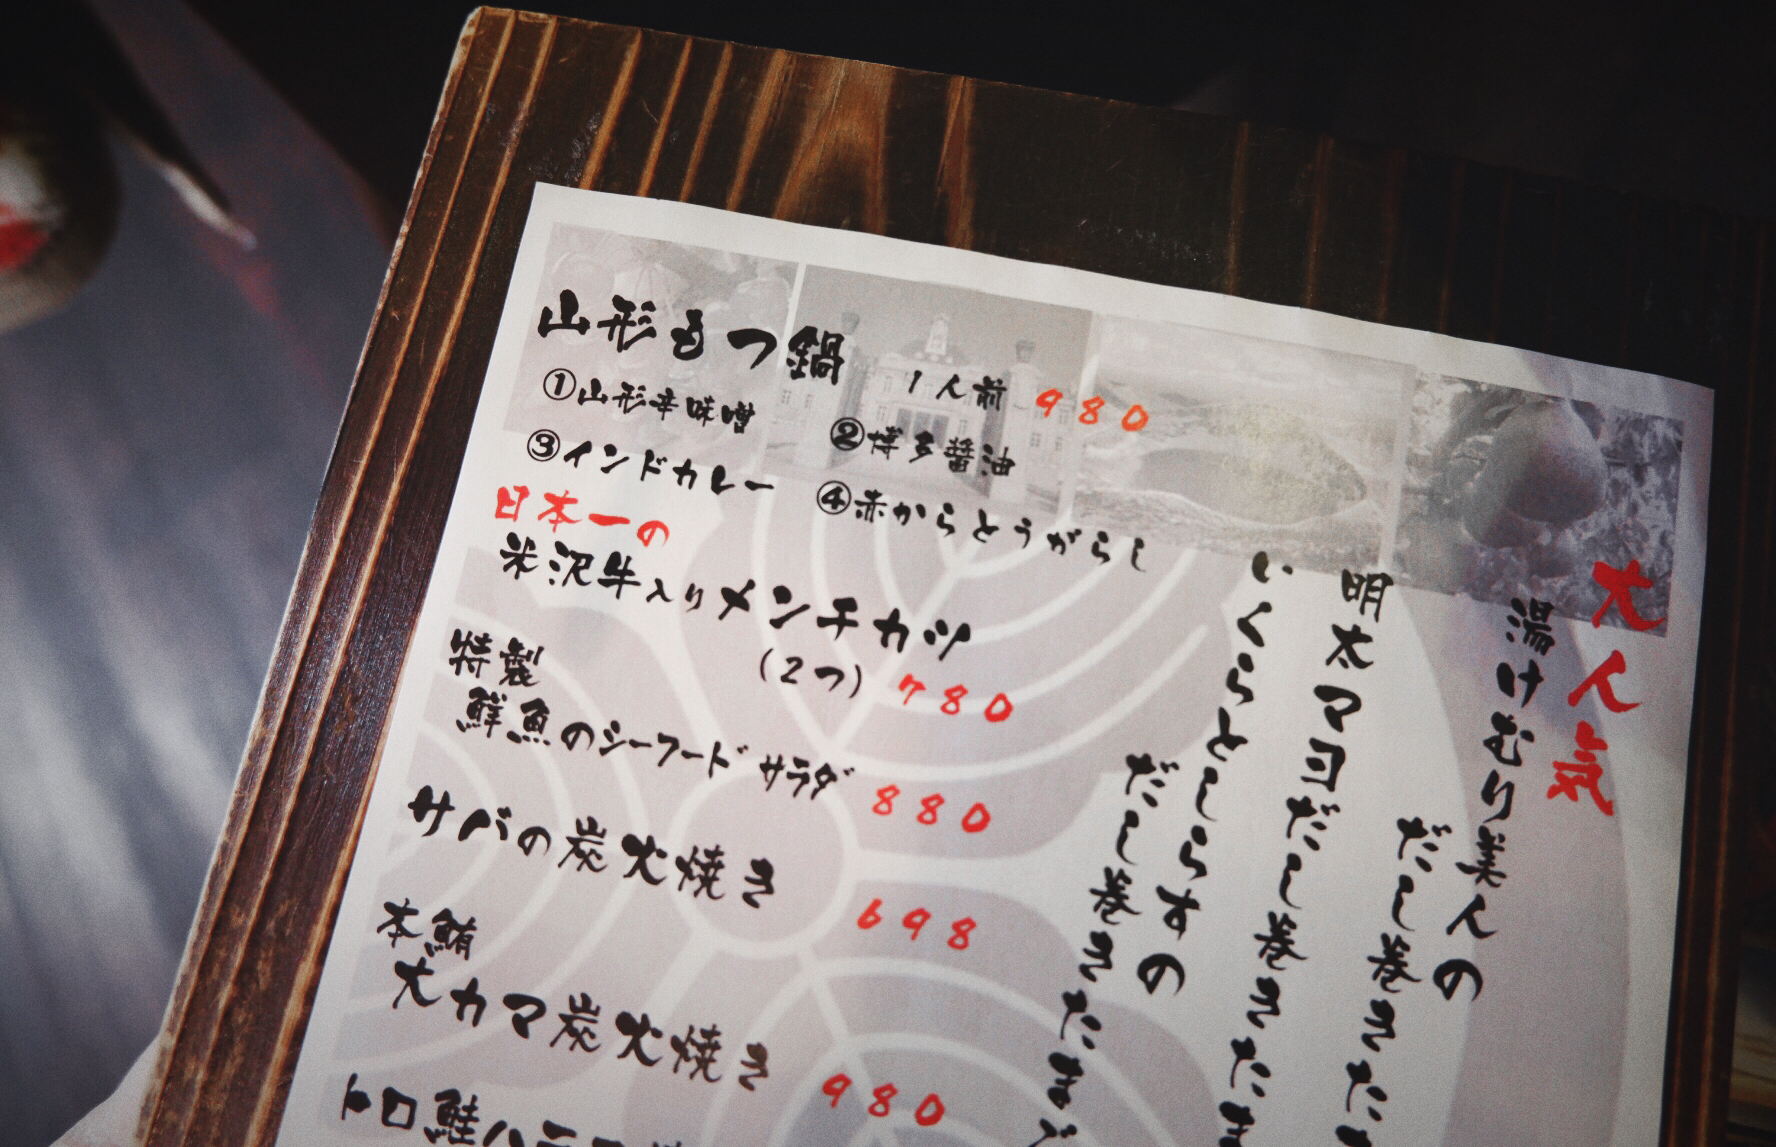 山形もつ鍋
1人前 980
①山形辛味噌
②博多醤油
③インドカレー
④赤からとうがらし
日本一の
米沢牛入りメンチカツ
(2つ) 780
特製
鮮魚のシーフードサラダ
880
サバの炭火焼き
698
本鮪
大カマ炭火焼き
980
トロ鮭ハラス
大人気
湯けむり美人の
だし巻きた
明太マヨだし巻きたま
いくらとしらすの
だし巻きたまご